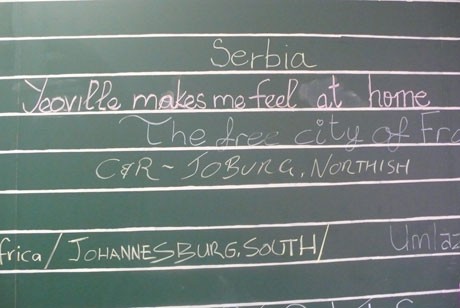 Serbia
Yeoville makes me feel at home
The free city of
C&R - JOBURG, NORTHISH
/ JOHANNESBURG, SOUTH/